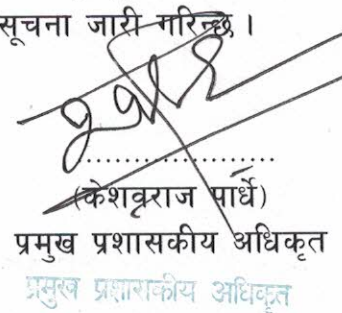 सूचना जारी गरिन्छ ।
........................
(केशवराज पार्धे)
प्रमुख प्रशासकीय अधिकृत
प्रमुख प्रशासकीय अधिकृत